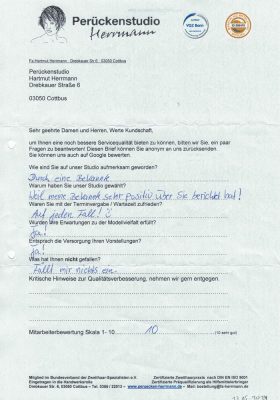 Perückenstudio
Herrmann
Fa.Hartmut Herrmann · Drebkauer Str. 6 · 03050 Cottbus
Perückenstudio
Hartmut Herrmann
Drebkauer Straße 6
03050 Cottbus
Sehr geehrte Damen und Herren, Werte Kundschaft,
um Ihnen eine noch bessere Servicequalität bieten zu können, bitten wir Sie, ein paar
Fragen zu beantworten! Diesen Brief können Sie anonym an uns zurücksenden.
Sie können uns auch auf Google bewerten.
Wie sind Sie auf unser Studio aufmerksam geworden?
Durch eine Bekannte
Warum haben Sie unser Studio gewählt?
Weil meine Bekannte sehr positiv über Sie berichtet hat!
Waren Sie mit der Terminvergabe / Wartezeit zufrieden?
Auf jeden Fall!
Wurden Ihre Erwartungen zu der Modellvielfalt erfüllt?
Ja!
Entsprach die Versorgung Ihren Vorstellungen?
Ja!
Was hat Ihnen nicht gefallen?
Fällt mir nichts ein.
Kritische Hinweise zur Qualitätsverbesserung, nehmen wir gern entgegen.
Mitarbeiterbewertung Skala 1- 10 10 (10 sehr gut)
Mitglied im Bundesverband der Zweithaar-Spezialisten e.V.
Eingetragen in die Handwerksrolle
Zertifizierte Zweithaarpraxis nach DIN EN ISO 9001
Zertifizierte Präqualifizierung als Hilfsmittelerbringer
www.peruecken-herrmann.de